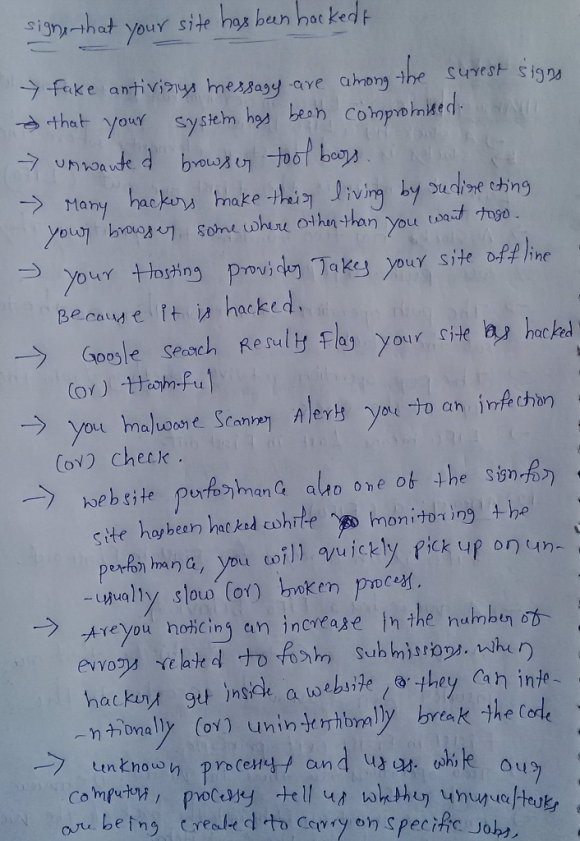 signs that your site has been hacked:
→ Fake antivirus message are among the surest signs
→ that your system has been compromised.
→ unwanted browser toolbars.
→ Many hackers make their living by redirecting
your browser some where other than you want togo.
→ your Hosting provider Takes your site offline
Because it is hacked.
→ Google search Results Flag your site as hacked
(or) Harmful
→ you malware Scanner Alerts you to an infection
(or) check.
→ website performance also one of the sign for
site has been hacked while monitoring the
performance, you will quickly pick up on un-
-usually slow (or) broken process.
→ Are you noticing an increase in the number of
errors related to form submissions. when
hackers get inside a website, they can inte-
-ntionally (or) unintentionally break the code
→ unknown processes and users. while our
computers, processes tell us whether unusual tasks
are being created to carry on specific jobs.